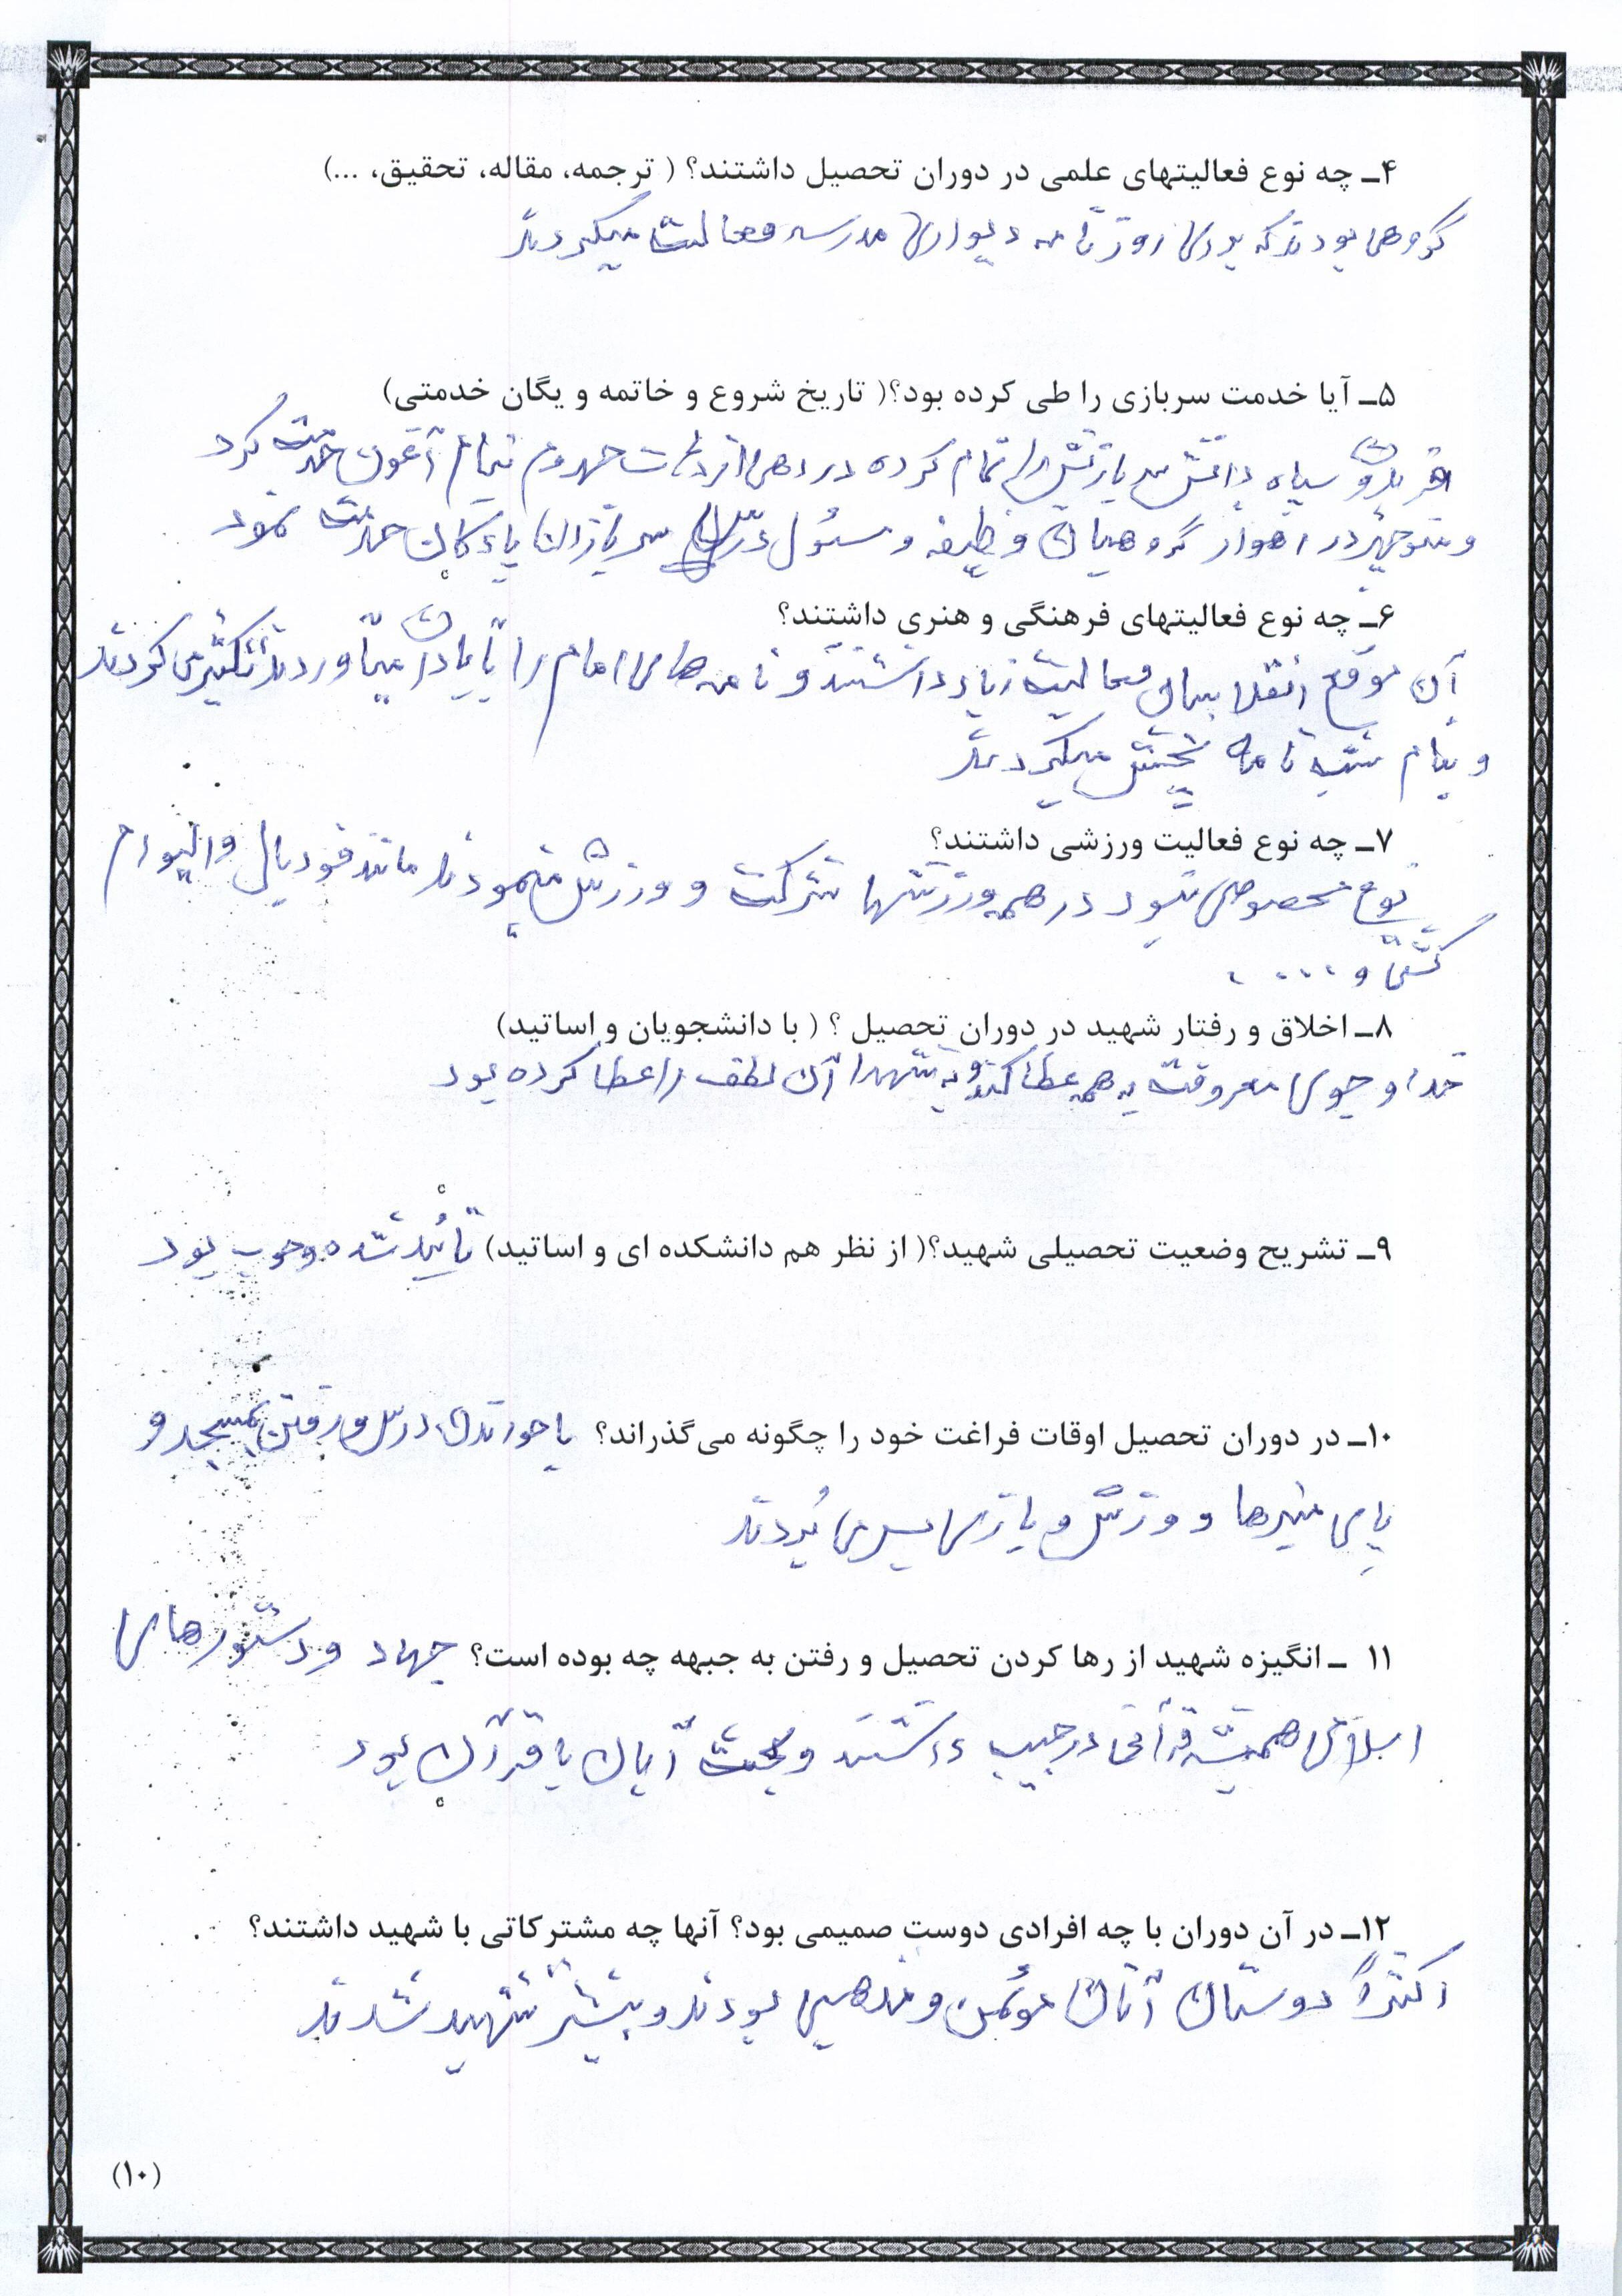 ۴ـ چه نوع فعالیتهای علمی در دوران تحصیل داشتند؟ ( ترجمه، مقاله، تحقیق، ...)
گروهی بودند که بروی روزنامه دیواری مدرسه فعالیت میکردند
۵ـ آیا خدمت سربازی را طی کرده بود؟( تاریخ شروع و خاتمه و یگان خدمتی)
سپاه دانش سربازیش را تمام کرده در دهی از دهات جهرم بنام خدمت کرد
و منوچهر در اهواز گروهبان وظیفه و مسئول سربازان پادگان خدمت نمود
۶ـ چه نوع فعالیتهای فرهنگی و هنری داشتند؟
آن موقع انقلاب فعالیت زیاد داشتند و نامه های امام را میآوردند تکثیر می کردند
و بنام شب نامه پخش میکردند
۷ـ چه نوع فعالیت ورزشی داشتند؟
نوع مخصوصی نبود در همه ورزشها شرکت و ورزش مینمودند مانند فوتبال والیبال
کشتی و ....
۸ـ اخلاق و رفتار شهید در دوران تحصیل ؟ ( با دانشجویان و اساتید)
خدا و خوی معروفت به همه عطا کند و به شهدا آن لطف را عطا کرده بود
۹ـ تشریح وضعیت تحصیلی شهید؟( از نظر هم دانشکده ای و اساتید) تأئید شده و خوب بود
۱۰ـ در دوران تحصیل اوقات فراغت خود را چگونه می‌گذراند؟ با خواندن درس و رفتن بمسجد و
پای منبرها و ورزش و بازی بسر می بردند
۱۱ ـ انگیزه شهید از رها کردن تحصیل و رفتن به جبهه چه بوده است؟ جهاد و دستورهای
اسلامی همیشه قرآنی در جیب داشتند و بحث آنان با قرآن بود
۱۲ـ در آن دوران با چه افرادی دوست صمیمی بود؟ آنها چه مشترکاتی با شهید داشتند؟
اکثراً دوستان آنان مؤمن و مذهبی بودند و بیشتر شهید شدند
(۱۰)